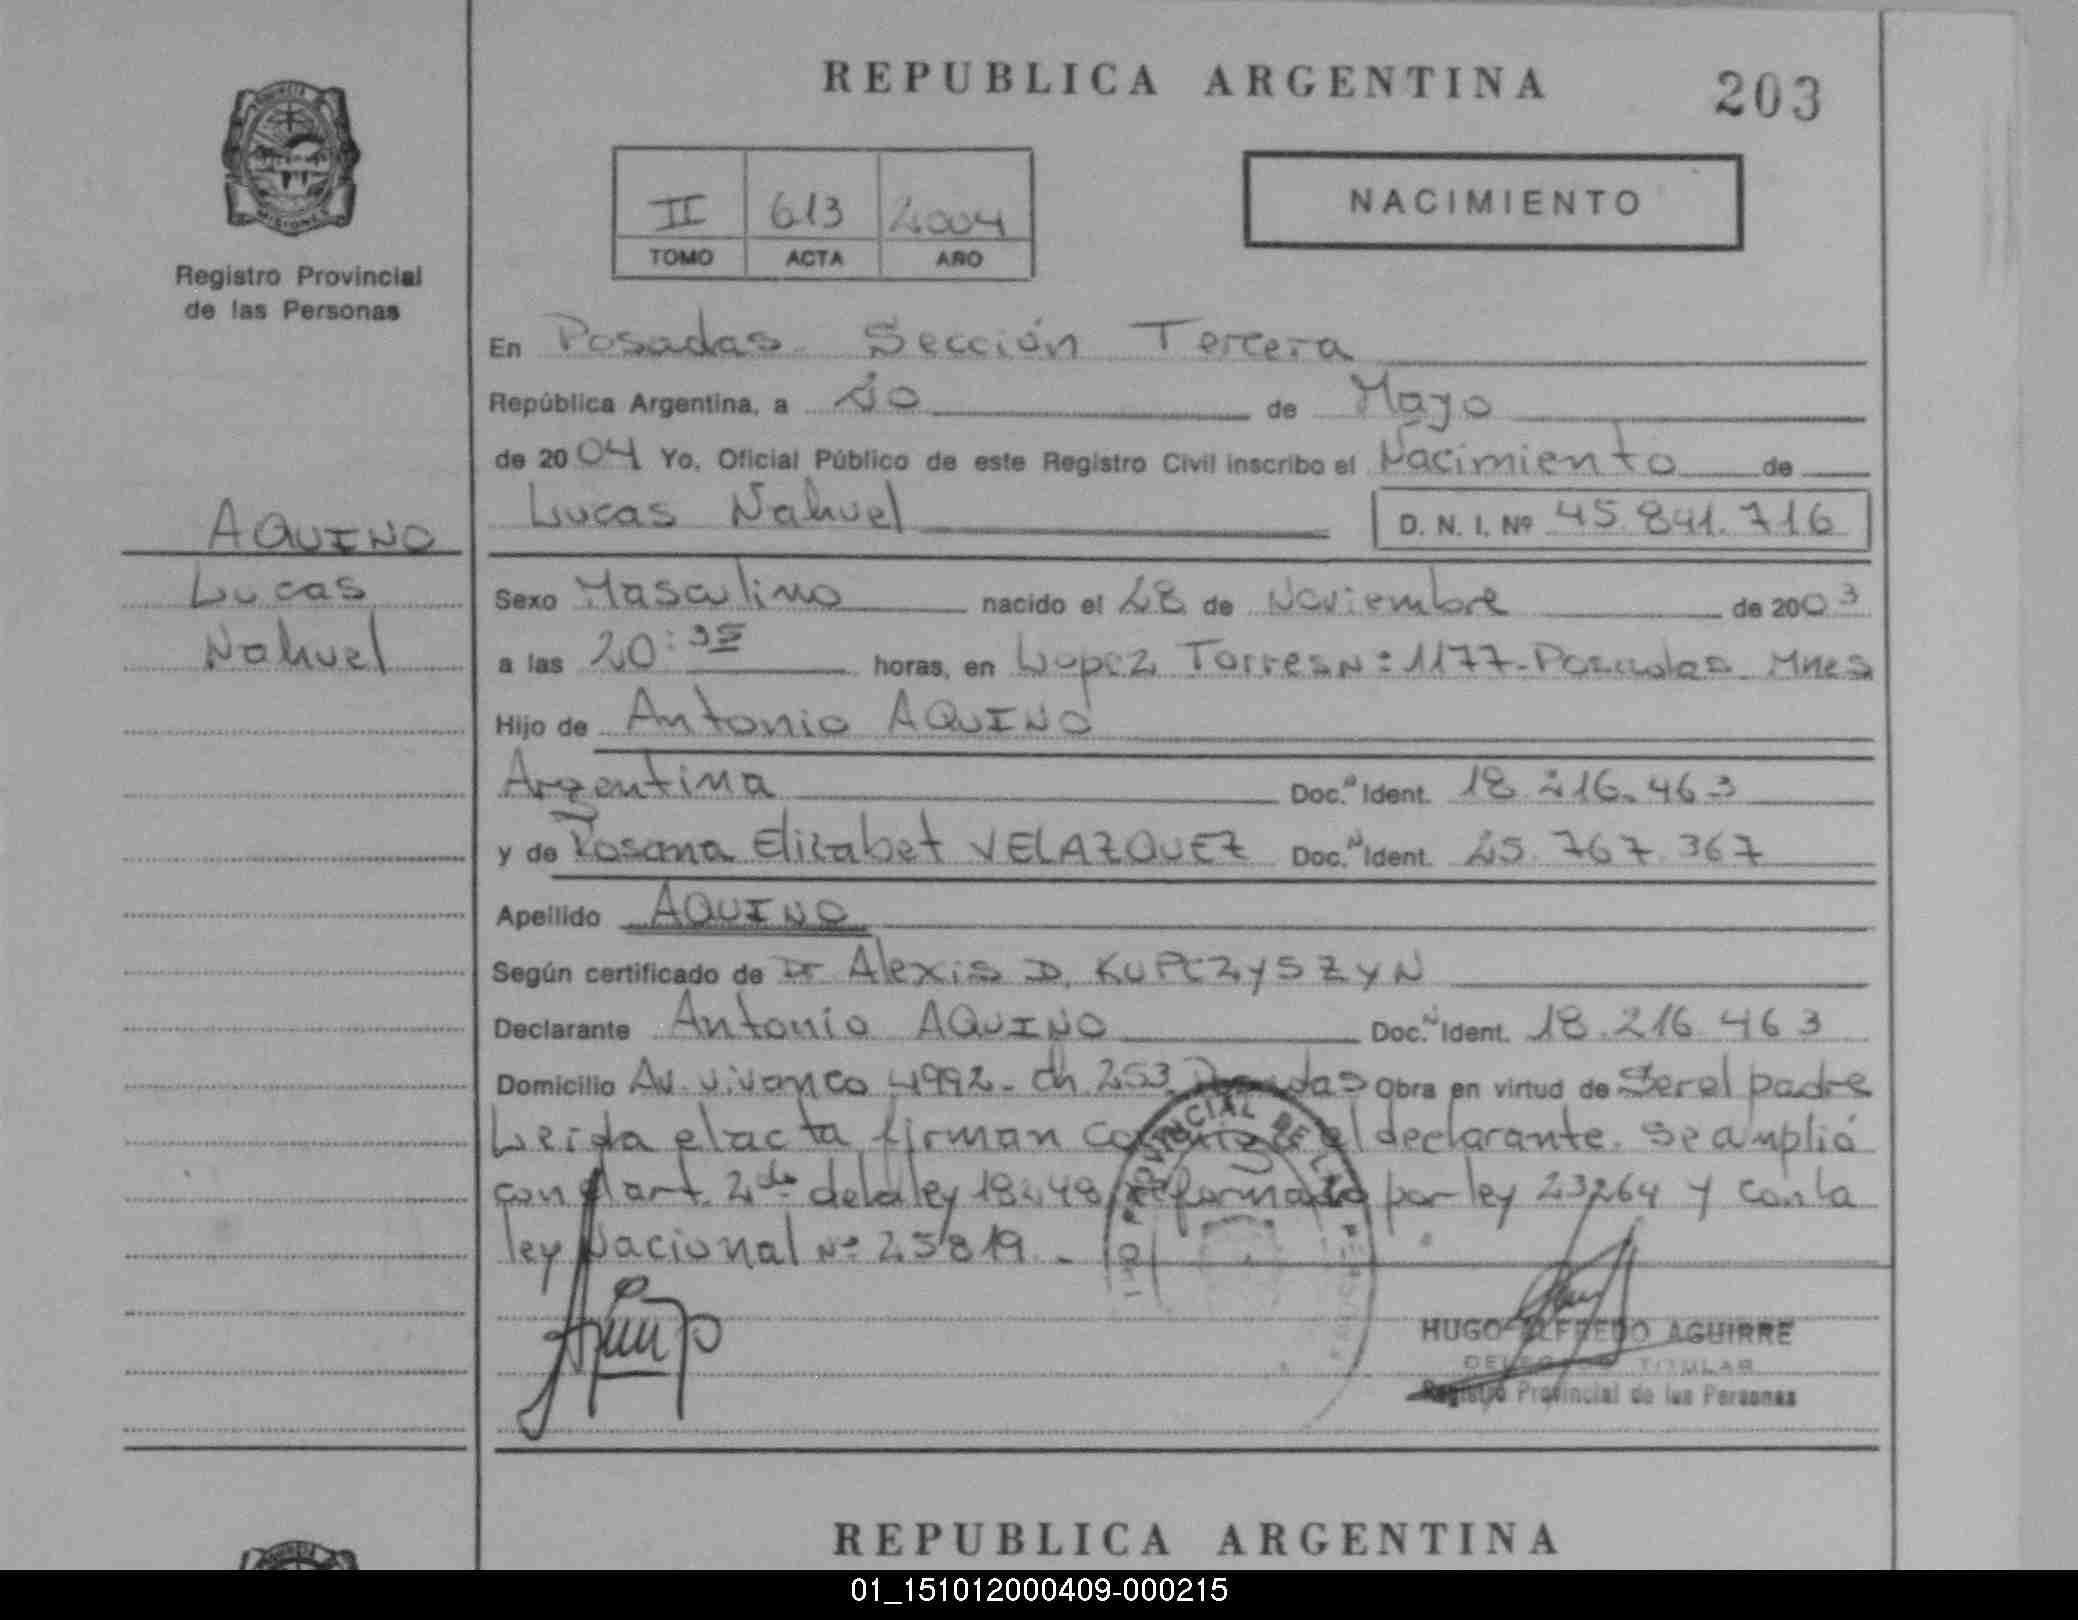 REPUBLICA ARGENTINA
203
PROVINCIA
MISIONES
Registro Provincial
de las Personas
II 613 2004
TOMO ACTA AÑO
NACIMIENTO
En Posadas. Sección Tercera
República Argentina, a 10 de Mayo
de 2004 Yo, Oficial Público de este Registro Civil inscribo el Nacimiento de
Lucas Nahuel D. N. I. Nº 45.841.716
AQUINO
Lucas
Nahuel
Sexo Masculino nacido el 28 de Noviembre de 2003
a las 20:35 horas, en Lopez Torres Nº 1177-Posadas. Mnes
Hijo de Antonio AQUINO
Argentina Doc. Ident. 18.216.463
y de Rosana Elizabet VELAZQUEZ Doc. Ident. 25.767.367
Apellido AQUINO
Según certificado de Dr Alexis D. KUPCZYSZYN
Declarante Antonio AQUINO Doc. Ident. 18.216.463
Domicilio Av. Vivanco 4992- Ch 253. Posadas Obra en virtud de Ser el padre
Leida el acta firman conmigo el declarante. Se amplió
con el art. 2do de la ley 18248 reformado por ley 23264 y con la
ley Nacional Nº 25819.-
Aquino
HUGO ALFREDO AGUIRRE
DELEGADO TITULAR
Registro Provincial de las Personas
REPUBLICA ARGENTINA
01_151012000409-000215